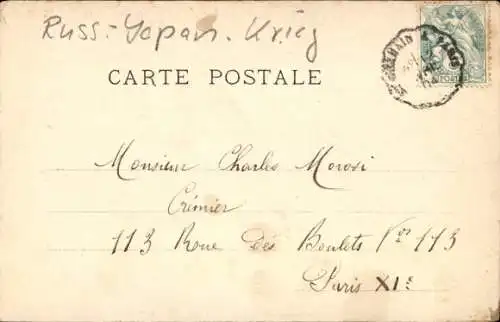 Russ.-Japan. Krieg
CARTE POSTALE
Monsieur Charles Morosi
Crémier
113 Roue des Boulets Nos 113
Paris XIe